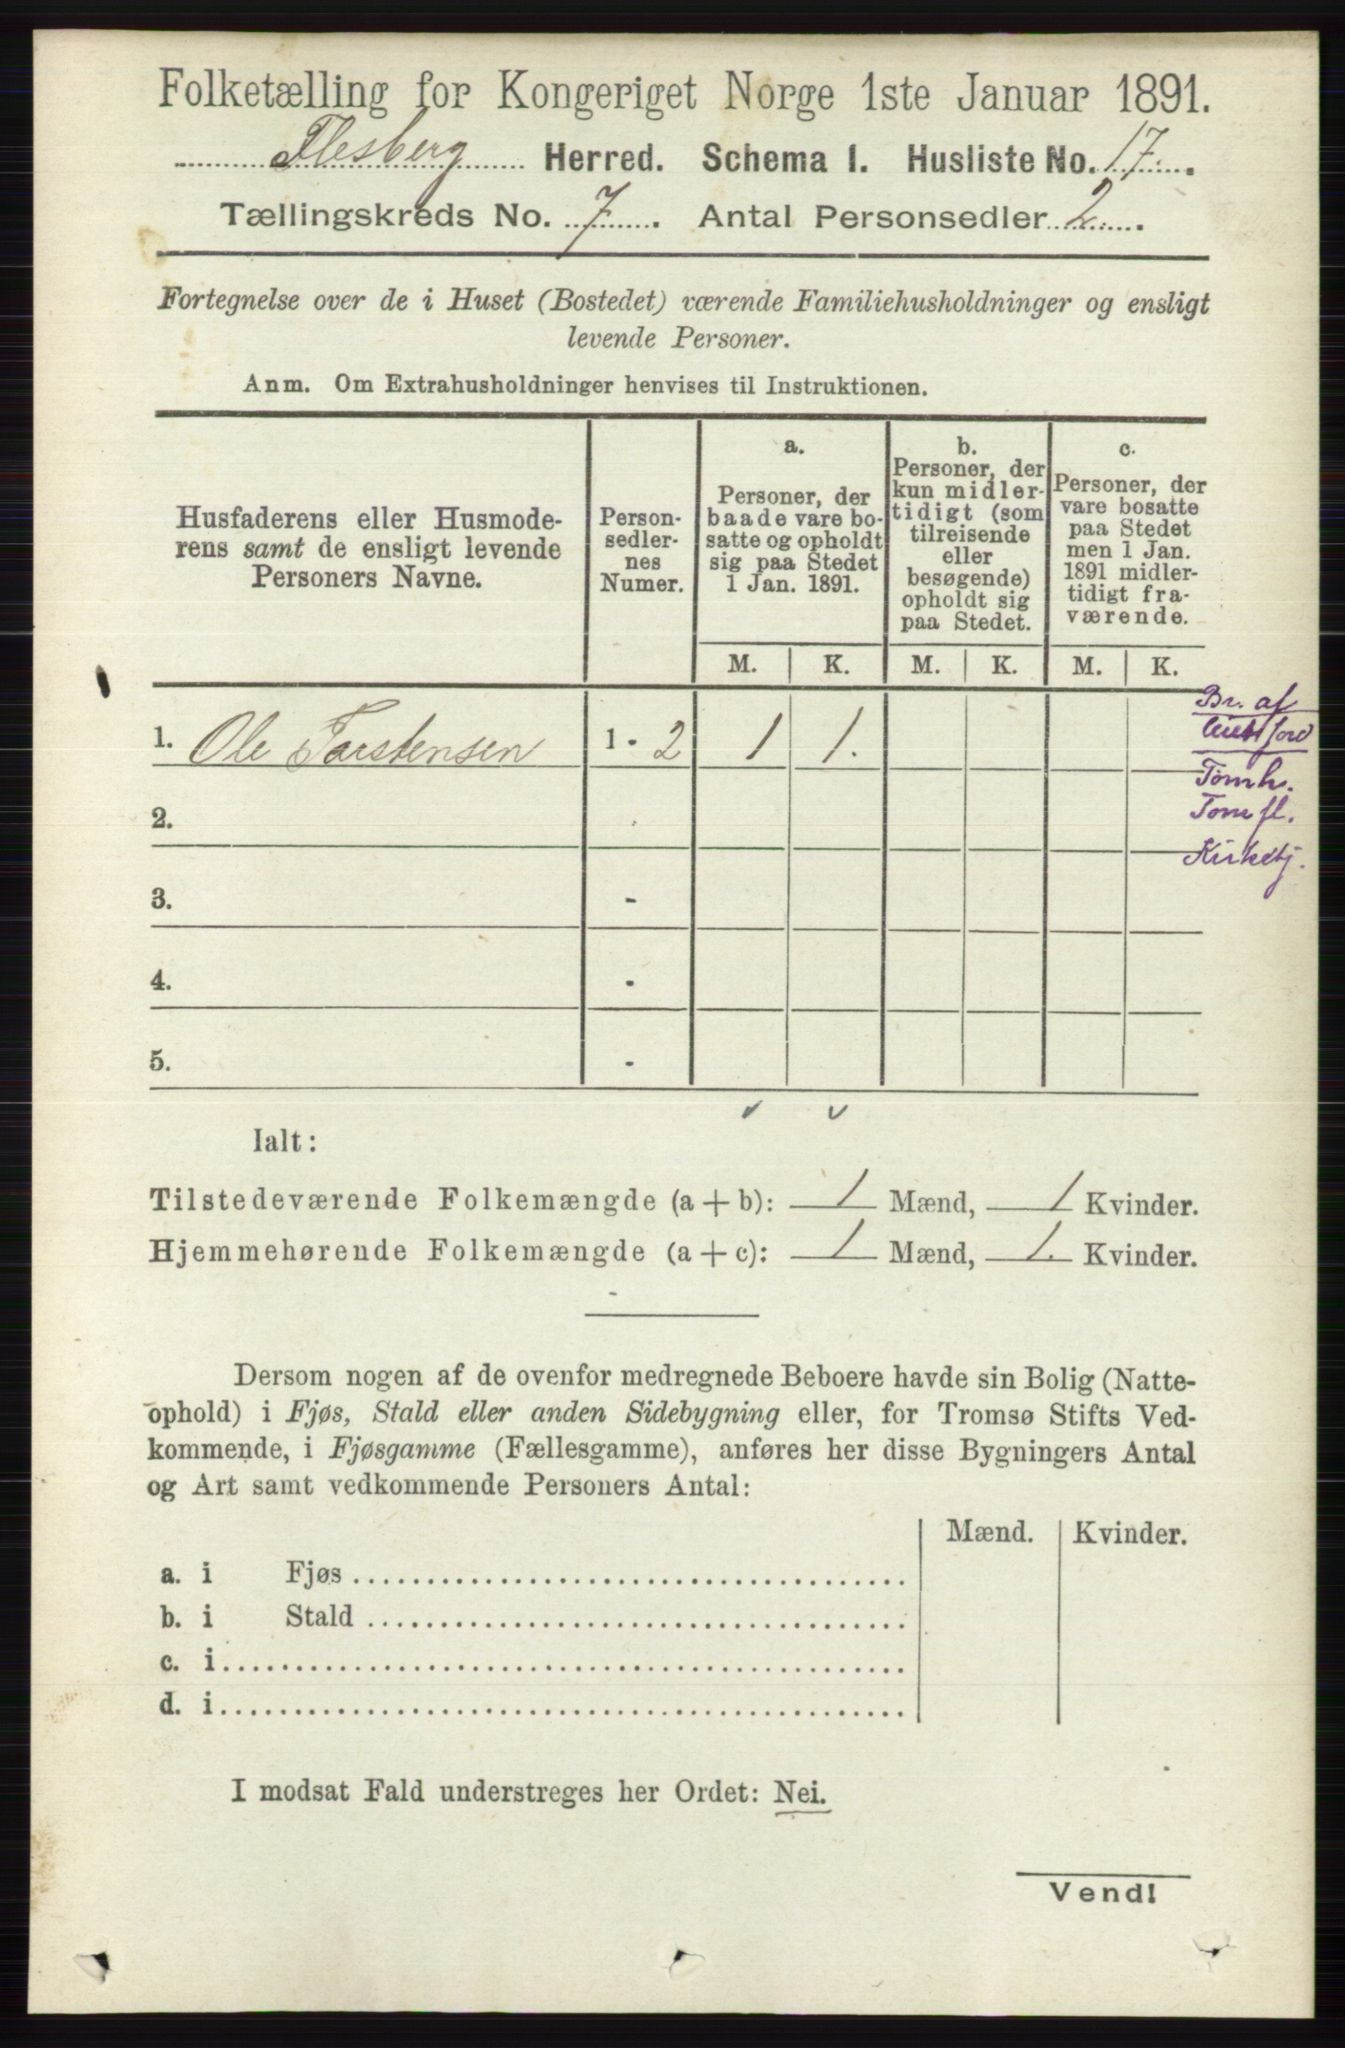 Folketælling for Kongeriget Norge 1ste Januar 1891.
Flesberg Herred. Schema I. Husliste No. 17.
Tællingskreds No. 7. Antal Personsedler 2.
Fortegnelse over de i Huset (Bostedet) værende Familiehusholdninger og ensligt
levende Personer.
Anm. Om Extrahusholdninger henvises til Instruktionen.
Husfaderens eller Husmode-
rens samt de ensligt levende
Personers Navne.
Person-
sedler-
nes
Numer.
a.
Personer, der
baade vare bo-
satte og opholdt
sig paa Stedet
1 Jan. 1891.
b.
Personer, der
kun midler-
tidigt (som
tilreisende
eller
besøgende)
opholdt sig
paa Stedet.
c.
Personer, der
vare bosatte
paa Stedet
men 1 Jan.
1891 midler-
tidigt fra-
værende.
M. K. M. K. M. K.
1. Ole Torstensen 1 - 2 1 1.
Br. af
jord
Tomh.
Tom fl.
Kirketj.
2.
3. -
4. -
5. -
Ialt:
Tilstedeværende Folkemængde (a + b): 1 Mænd, 1 Kvinder.
Hjemmehørende Folkemængde (a + c): 1 Mænd, 1. Kvinder.
Dersom nogen af de ovenfor medregnede Beboere havde sin Bolig (Natte-
ophold) i Fjøs, Stald eller anden Sidebygning eller, for Tromsø Stifts Ved-
kommende, i Fjøsgamme (Fællesgamme), anføres her disse Bygningers Antal
og Art samt vedkommende Personers Antal:
Mænd. Kvinder.
a. i Fjøs
b. i Stald
c. i
d. i
I modsat Fald understreges her Ordet: Nei.
Vend!